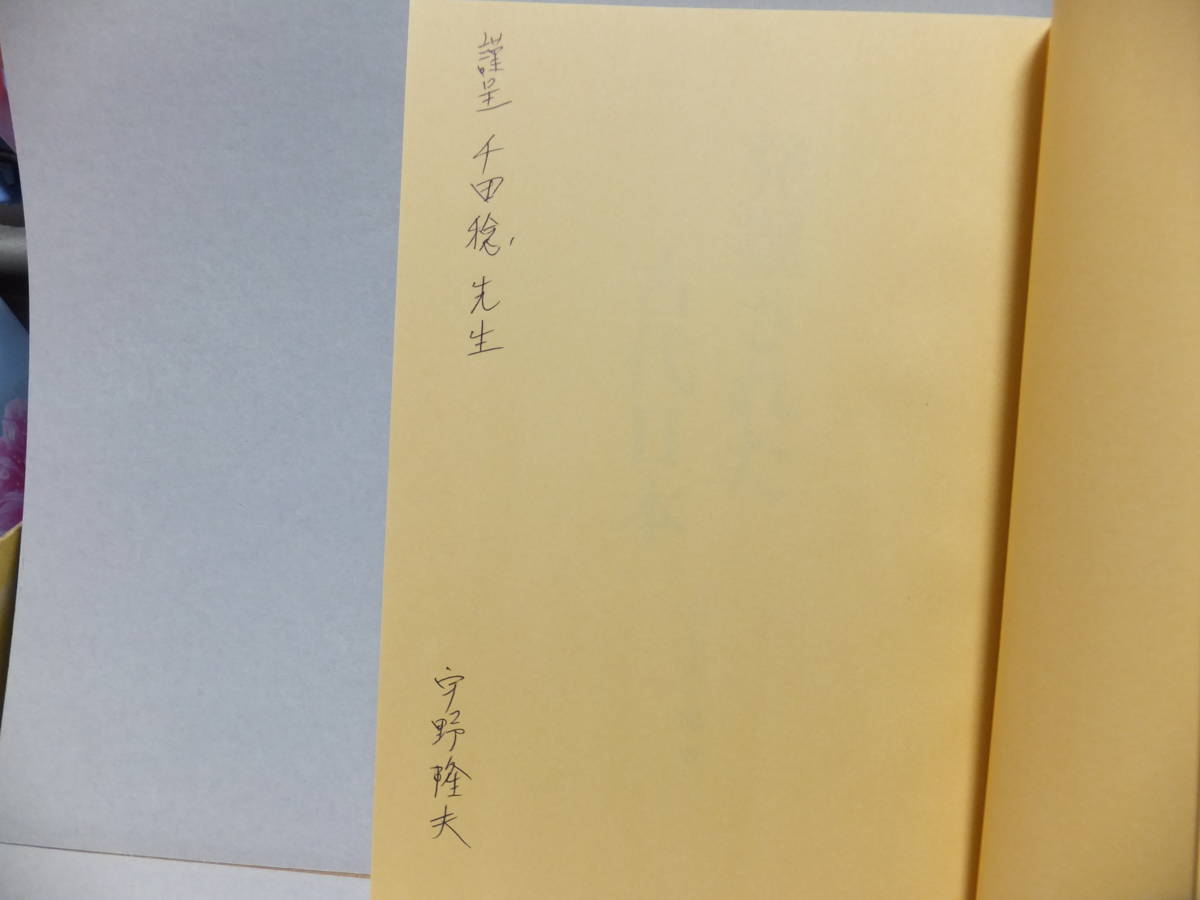 謹呈 千田稔先生
宇野隆夫